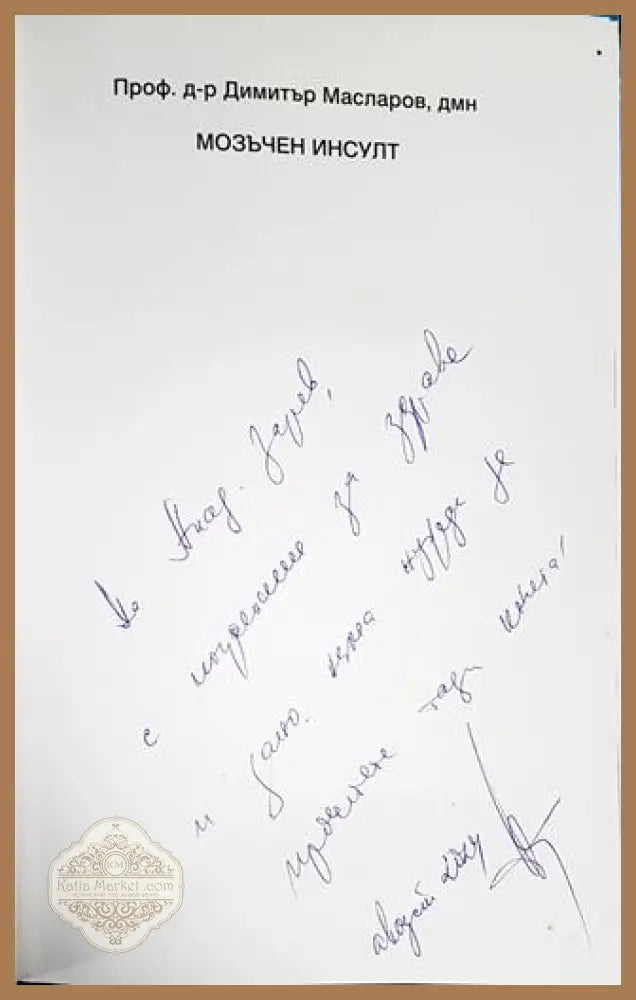 Проф. д-р Димитър Масларов, дмн
МОЗЪЧЕН ИНСУЛТ
На Акад.
с пожелание за здраве
и дано няма нужда да
прочетете тази книга!
август
KM
Katia Market .com